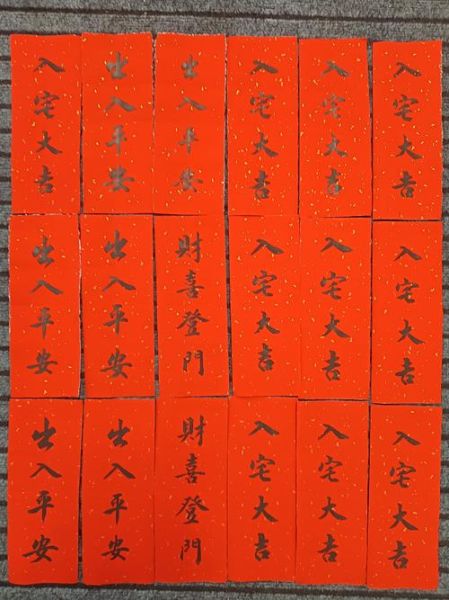 入宅大吉
出入平安
出入平安
入宅大吉
入宅大吉
入宅大吉
出入平安
出入平安
財喜登門
入宅大吉
入宅大吉
入宅大吉
出入平安
出入平安
財喜登門
入宅大吉
入宅大吉
入宅大吉